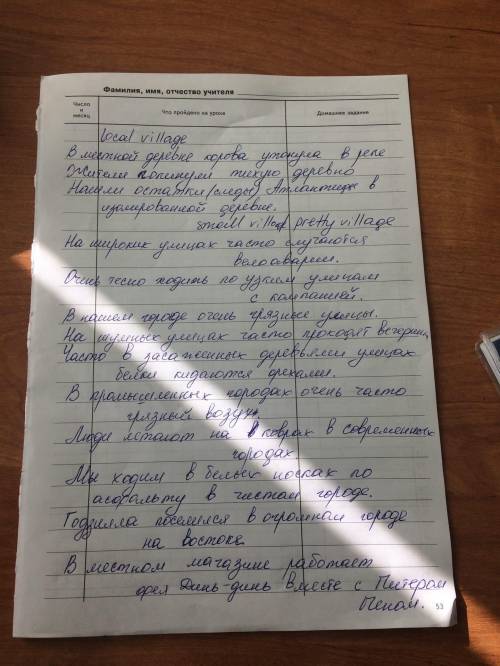 Фамилия, имя, отчество учителя
Число и месяц Что пройдено на уроке Домашнее задание
local village
В местной деревне корова утонула в реке
Жители покинули тихую деревню
Нашли остатки (следы) Атлантиды в
изолированной деревне.
small village pretty village
На широких улицах часто случаются
велоаварии.
Очень тесно ходить по узким улицам
с компанией.
В нашем городе очень грязные улицы.
На шумных улицах часто проходят вечерин
Часто в засаженных деревьями улицах
белки кидаются орехами.
В промышленных городах очень часто
грязный воздух.
Люди летают на коврах в современных
городах
Мы ходим в белых носках по
асфальту в чистом городе.
Годзилла поселился в огромном городе
на востоке
В местном магазине работает
фея Динь-динь вместе с Питером
Пеном.
53